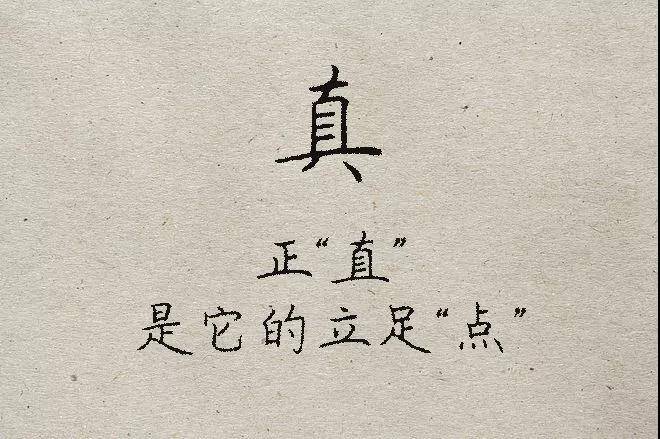 真
正“直”
是它的立足“点”